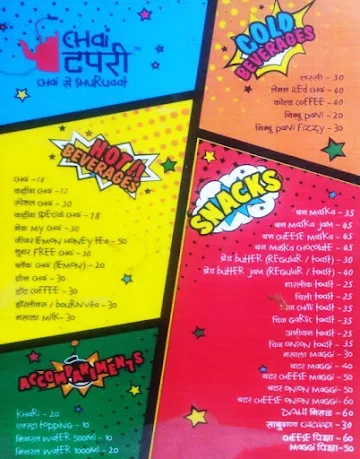 CHai
टपरी
CHai से SHURUaat
COLD
BEVERAGES
लस्सी - 30
लेमन iced CHai - 40
कोल्ड COFFEE - 40
निम्बू Pani - 20
निम्बू Pani Fizzy - 30
HOT
BEVERAGES
CHai - 18
कटिंग CHai - 12
स्पेशल CHai - 30
कटिंग SPecial CHai - 18
मेक my CHai - 30
जींजर Lemon HONEY Tea - 50
शुगर FREE CHai - 30
ब्लॅक CHai (Lemon) - 20
ग्रीन CHai - 30
हॉट COFFEE - 30
हॉर्लीक्स / BOURNVita - 30
मसाला Milk - 30
SNACKS
बन Maska - 35
बन Maska Jam - 45
बन CHEESE Maska - 45
बन Maska CHOCOLATE - 45
ब्रेड BUTTER (REGULAR / TOAST) - 30
ब्रेड BUTTER Jam (REGULAR / TOAST) - 40
गारलीक TOAST - 25
चिली TOAST - 25
चिज CHILLI TOAST - 35
चिज GARLIC TOAST - 35
अनीयन TOAST - 25
चिज ONION TOAST - 35
मसाला MAGGI - 30
बटर MAGGI - 40
बटर CHEESE MAGGI - 50
बटर ONION MAGGI - 50
बटर CHEESE ONION MAGGI - 60
DAHI मिसळ - 60
साबुदाणा KHICHADI - 30
CHEESE पिझ्झा - 60
MAGGI पिझ्झा - 50
ACCOMPANIMENTS
KHARI - 20
एक्स्ट्रा TOPPING - 10
मिनरल WATER 500ml - 10
मिनरल WATER 1000ml - 20